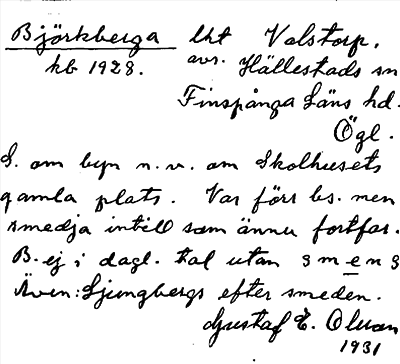 Björkberga lht Valstorp.
kb 1928. avs. Hällestads sn
Finspånga läns hd.
Ögl.
S. om byn n.v. om Skolhusets
gamla plats. Var förr bs. men
smedja intill som ännu fortfar.
B. ej i dagl. tal utan smens
Även: Ljungbergs efter smeden.
Gustaf E. Olsson
1931